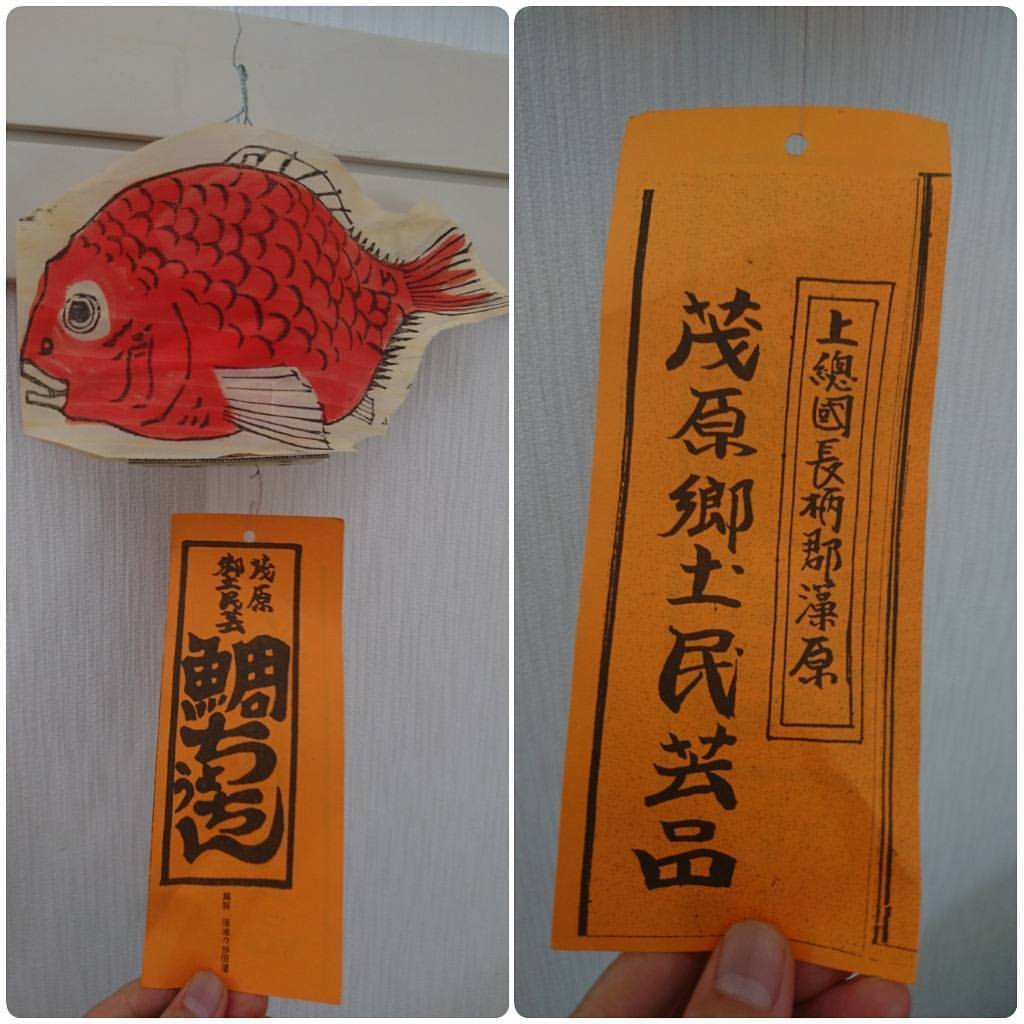 茂原
郷土民芸
鯛ちょうちん
上總國長柄郡藻原
茂原郷土民芸品